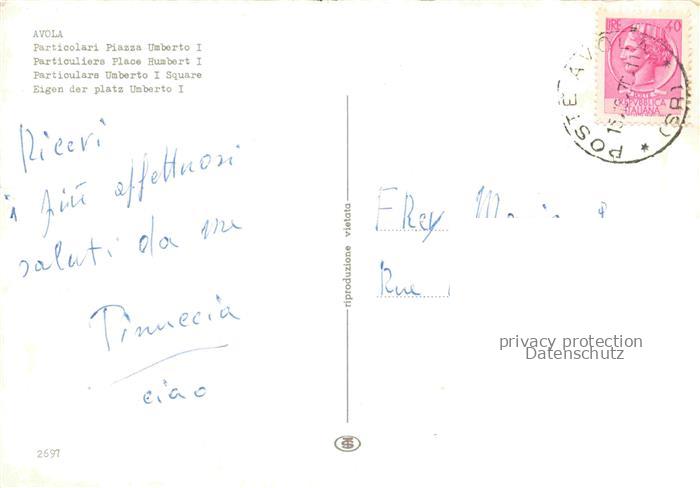 AVOLA
Particolari Piazza Umberto I
Particuliers Place Humbert I
Particulars Umberto I Square
Eigen der platz Umberto I
Ricevi
i più affettuosi
saluti da me
Pinuccia
ciao
2697
riproduzione vietata
LIRE 40
REPUBBLICA
ITALIANA
POSTE AVOLA
(SR)
FRey
Rue
privacy protection
Datenschutz